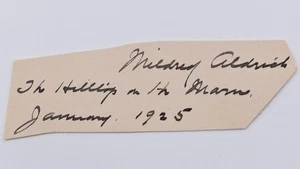 Mildred Aldrich
The Hilltop on the Marne.
January. 1925